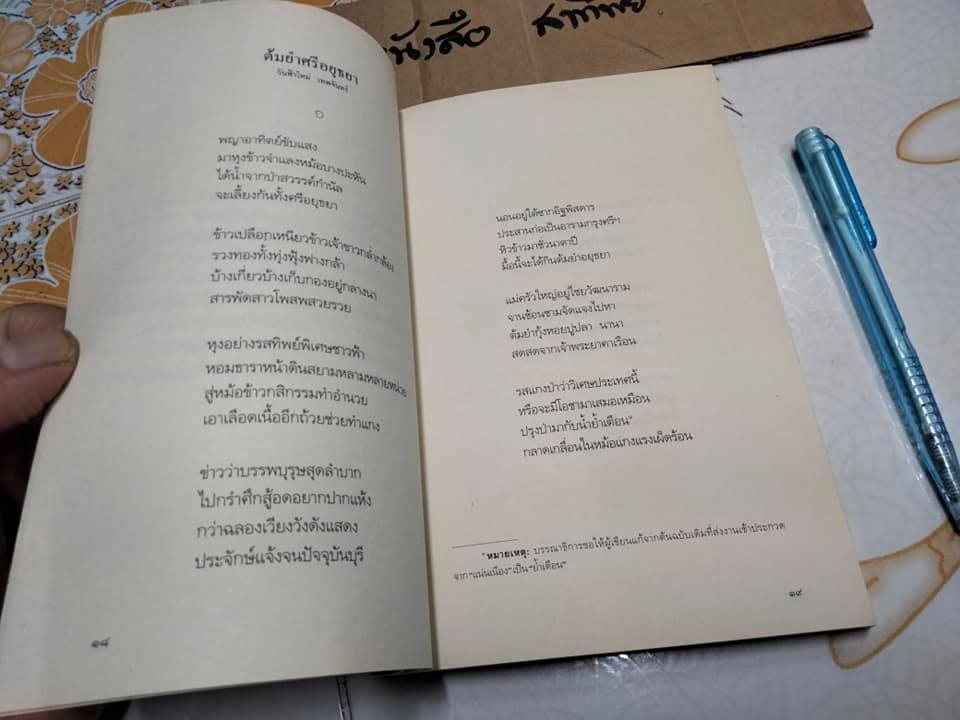 หนังสือ
ต้มยำศรีอยุธยา
วันฟ้าใหม่ เทพจันทร์
๑
พญาอาทิตย์ขับแสง
มาหุงข้าวจำแลงหม้อบางปะหัน
ได้น้ำจากป่าสวรรค์กำนัล
จะเลี้ยงกันทั้งศรีอยุธยา
ข้าวเปลือกเหนียวข้าวเจ้าขาวกล่ำกล้อง
รวงทองทั้งทุ่งฟุ้งฟางกล้า
บ้างเกี่ยวบ้างเก็บกองอยู่กลางนา
สารพัดสาวโพสพสวยรวย
หุงอย่างรสทิพย์พิเศษชาวฟ้า
หอมธาราหน้าดินสยามหลามหลายหน่วย
สู่หม้อข้าวกสิกรรมทำอำนวย
เอาเลือดเนื้ออีกถ้วยช่วยทำแกง
ข่าวว่าบรรพบุรุษสุดลำบาก
ไปกรำศึกสู้อดอยากปากแห้ง
กว่าฉลองเวียงวังดังแสดง
ประจักษ์แจ้งจนปัจจุบันบุรี
๑๘
นอนอยู่ใต้ซากอิฐพิสดาร
ประสานก่อเป็นอารามกรุงศรีฯ
หิวข้าวมาชั่วนาตาปี
มื้อนี้จะได้กินต้มยำอยุธยา
แม่ครัวใหญ่อยู่ไชยวัฒนาราม
จานช้อนชามจัดแจงไปหา
ต้มยำกุ้งหอยปูปลา นานา
สดสดจากเจ้าพระยาคาเรือน
รสแกงป่าว่าวิเศษประเทศนี้
หรือจะมีโอชามาเสมอเหมือน
ปรุงป่ามากับน้ำย้ำเตือน*
กลาดเกลื่อนในหม้อแกงแรงเผ็ดร้อน
*หมายเหตุ: บรรณาธิการขอให้ผู้เขียนแก้จากต้นฉบับเดิมที่ส่งงานเข้าประกวด
จาก"แน่นเนือง"เป็น"ย้ำเตือน"
๑๙